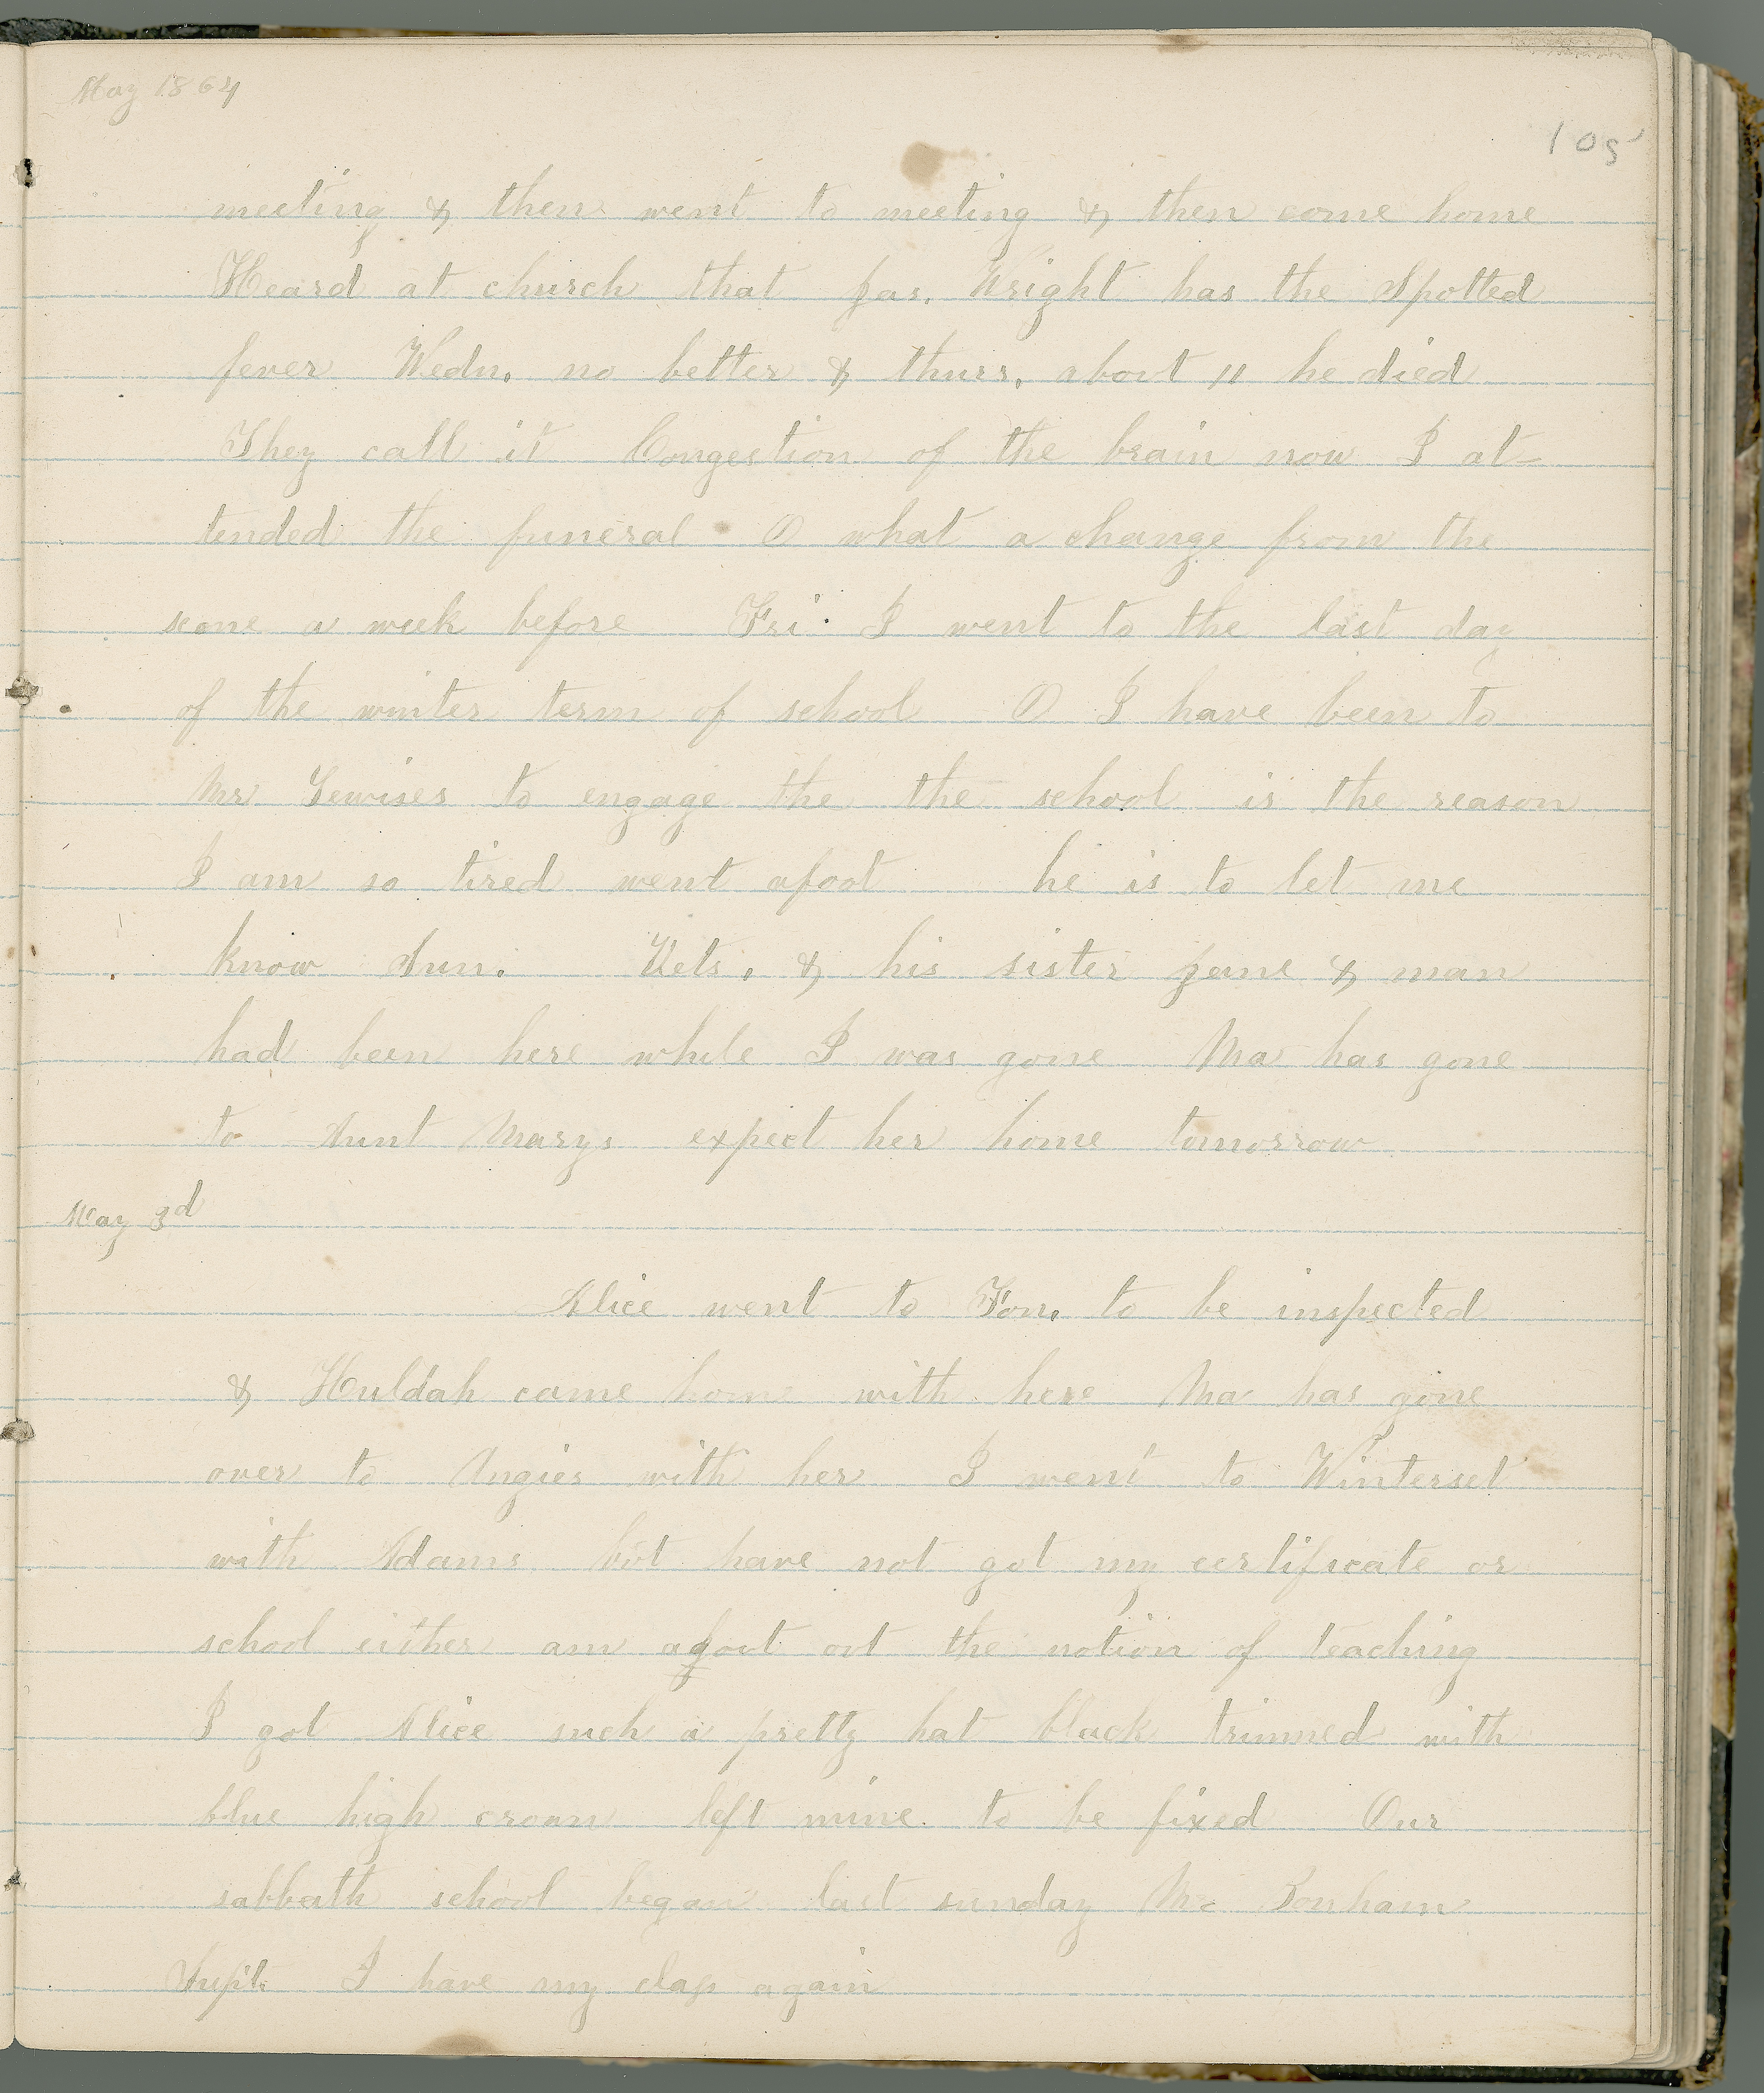 May 1864
105
meeting & then went to meeting & then come home
Heard at church that Jas. Wright has the Spotted
fever Wedn. no better & thurs. about 11 he died
They call it Congestion of the brain now I at-
tended the funeral O what a change from the
scone a week before Fri. I went to the last day
of the winter term of school O I have been to
Mr Lewises to engage the the school is the reason
I am so tired went afoot he is to let me
know Sun. & his sister Jane & man
had been here while I was gone Ma has gone
to Aunt Marys expect her home tomorrow
May 3d
Alice went to Fon. to be inspected
& Huldah came home with here Ma has gone
over to Angies with her I went to Winterset
with Adams but have not got my certificate or
school either am about out the notion of teaching
I got Alice such a pretty hat black trimmed with
blue high crown left mine to be fixed Our
sabbath school began last sunday Mr Bonham
Supt. I have my class again